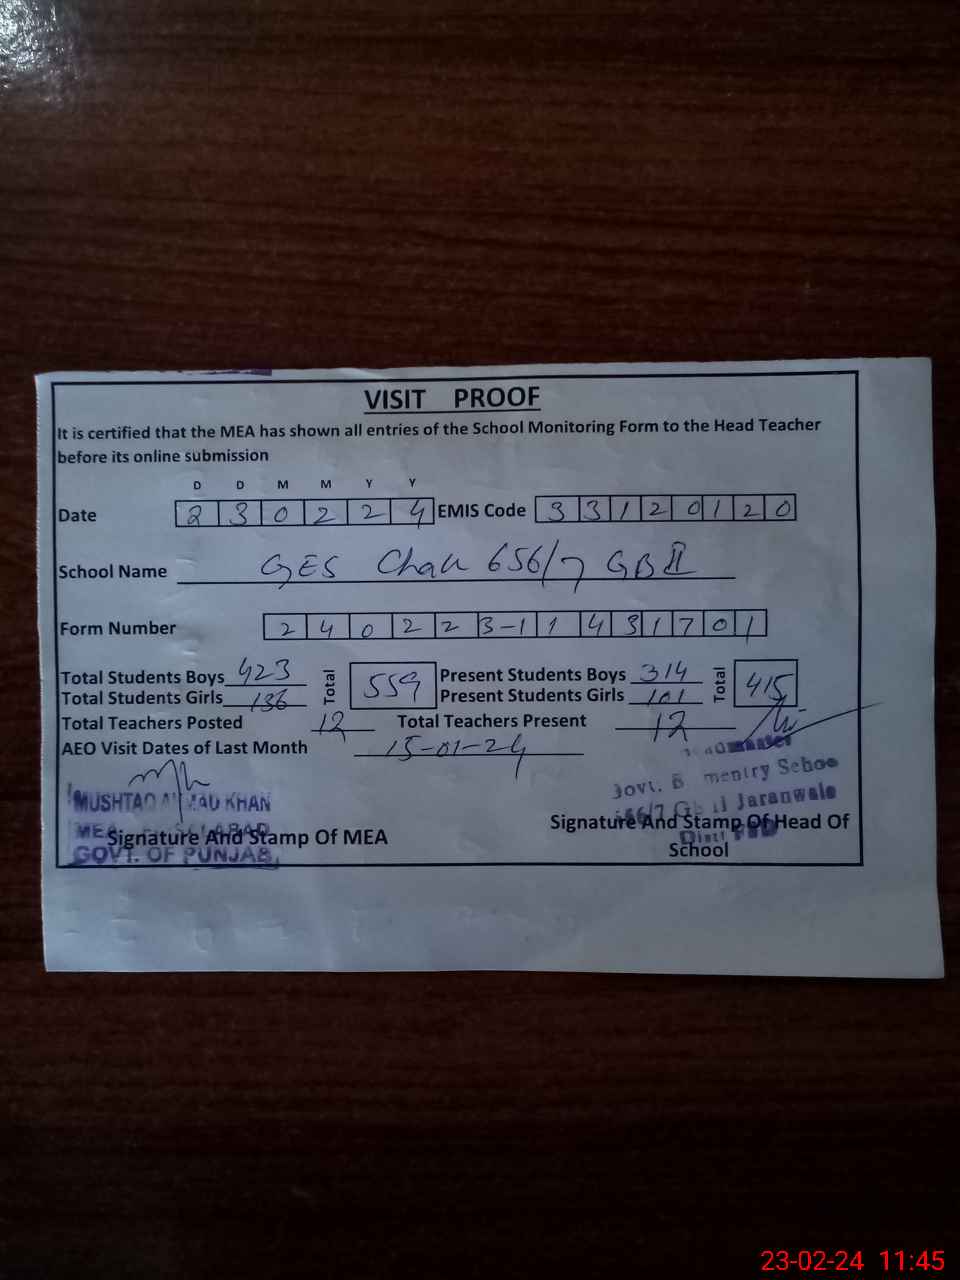 VISIT PROOF
It is certified that the MEA has shown all entries of the School Monitoring Form to the Head Teacher
before its online submission
D D M M Y Y
Date 2 3 0 2 2 4 EMIS Code 3 3 1 2 0 1 2 0
School Name GES Chak 656/7 GB II
Form Number 2 4 0 2 2 3-1 1 4 3 1 7 0 1
Total Students Boys 423 Total 559 Present Students Boys 314 Total 415
Total Students Girls 136 Present Students Girls 101
Total Teachers Posted 12 Total Teachers Present 12
AEO Visit Dates of Last Month 15-01-24
MUSHTAQ AHMAD KHAN
Signature And Stamp Of MEA
GOVT. OF PUNJAB
Govt. Schoo
Jaranwala
Signature And Stamp Of Head Of
School
23-02-24 11:45